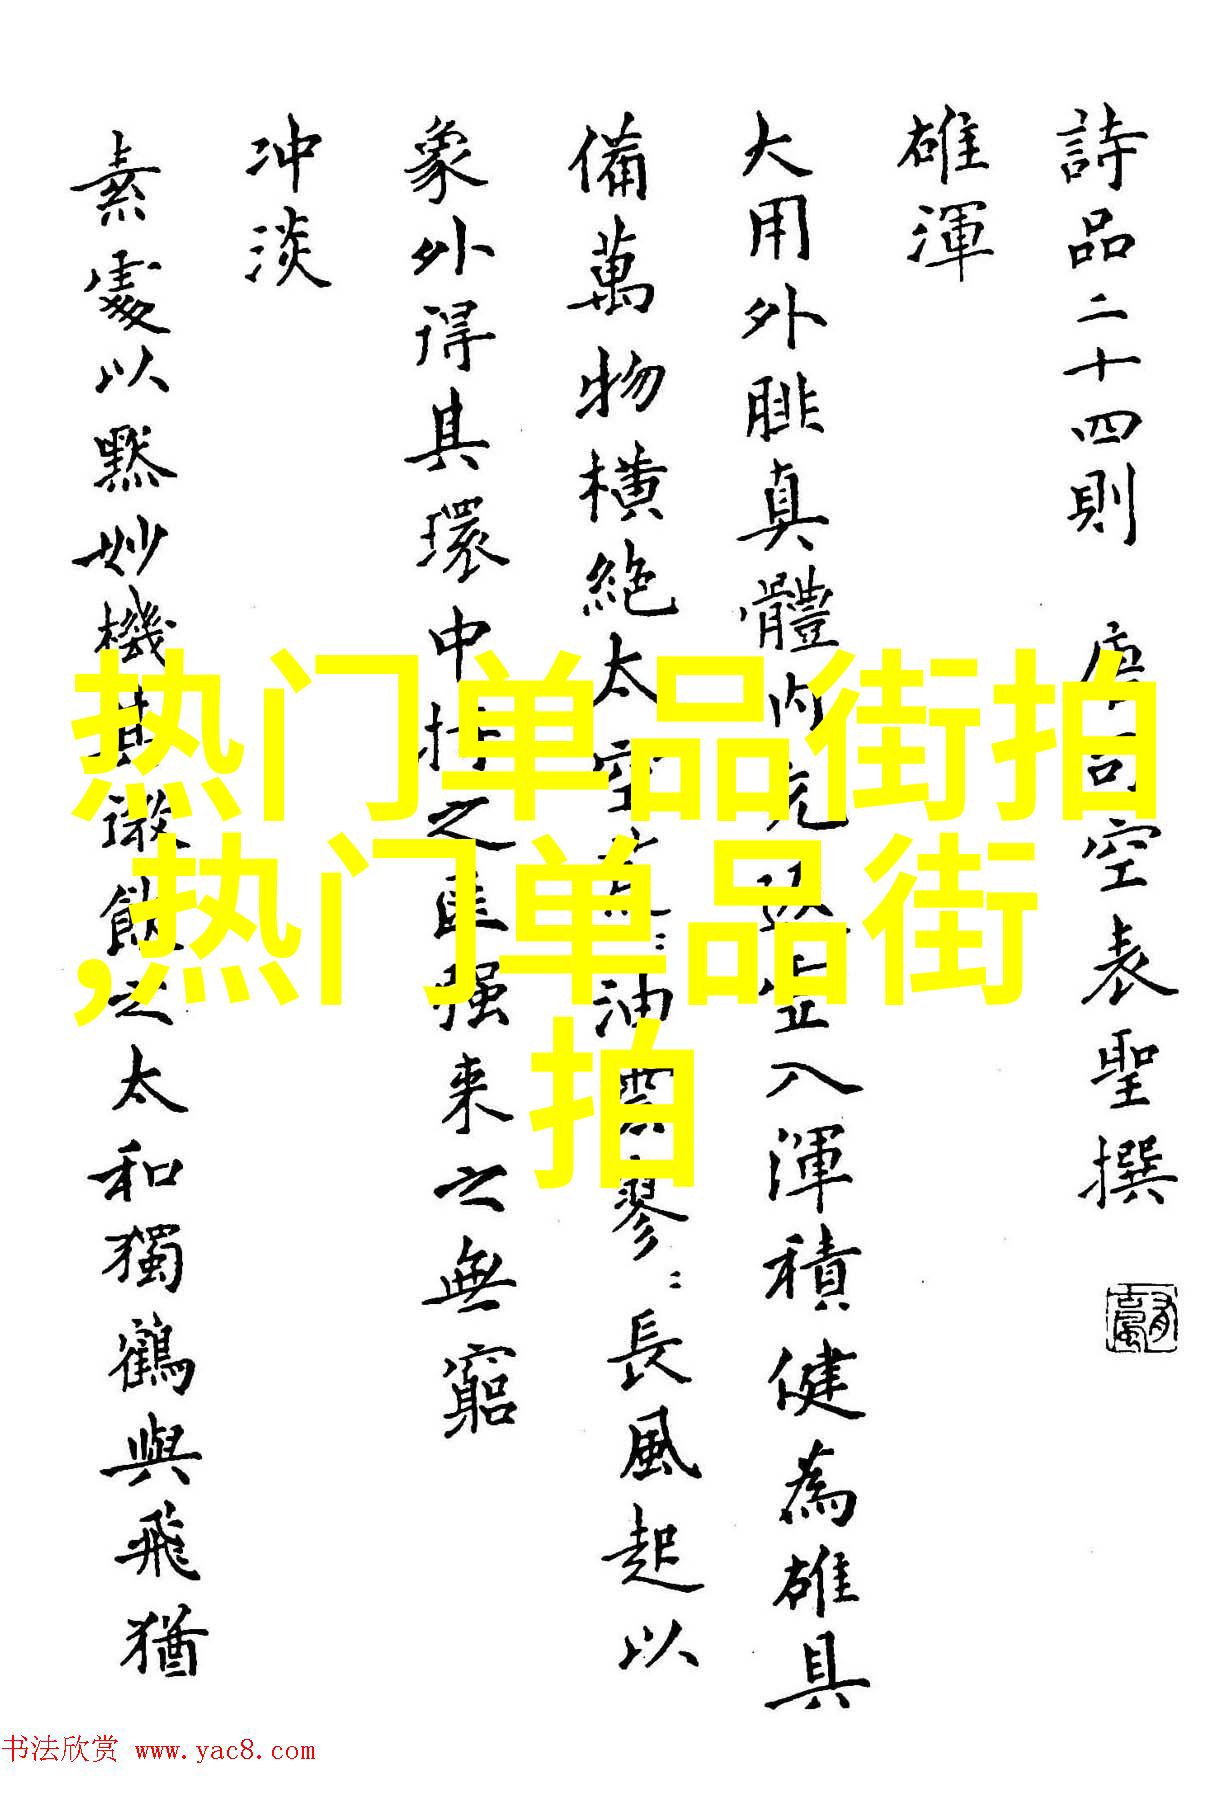 詩品二十四則 唐司空表聖撰
雄渾
大用外腓真體内充返虛入渾積健為雄具
備萬物橫絶太空荒〻油雲寥〻長風起以
象外得其環中持之匪强来之無窮
冲淡
素處以默妙機其微飲之太和獨鶴與飛猶
热门单品街拍
,热门单品街
拍
书法欣赏 www.yac8.com